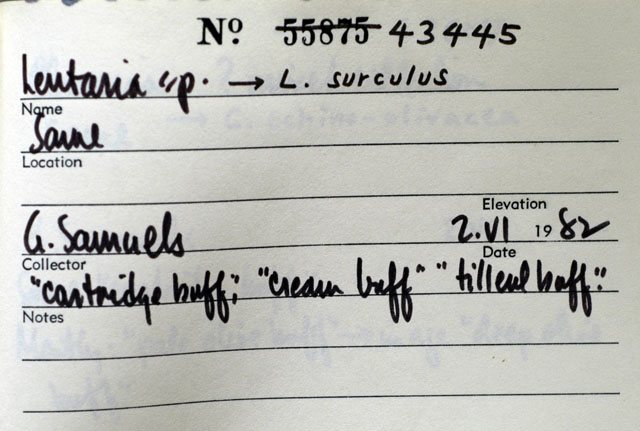 Nº 55875 43445
Lentaria sp. → L. surculus
Name
Same
Location
Elevation
G. Samuels 2.VI 1982
Collector Date
"cartridge buff", "cream buff" "tilleul buff".
Notes